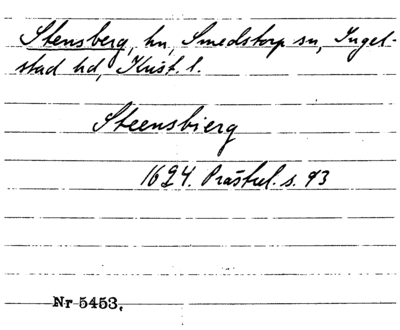 Stensberg, hn, Smedstorp sn, Ingel-
stad hd, Krist. l.
Steensbierg
1624. Prästrel. s. 93
Nr 5453.